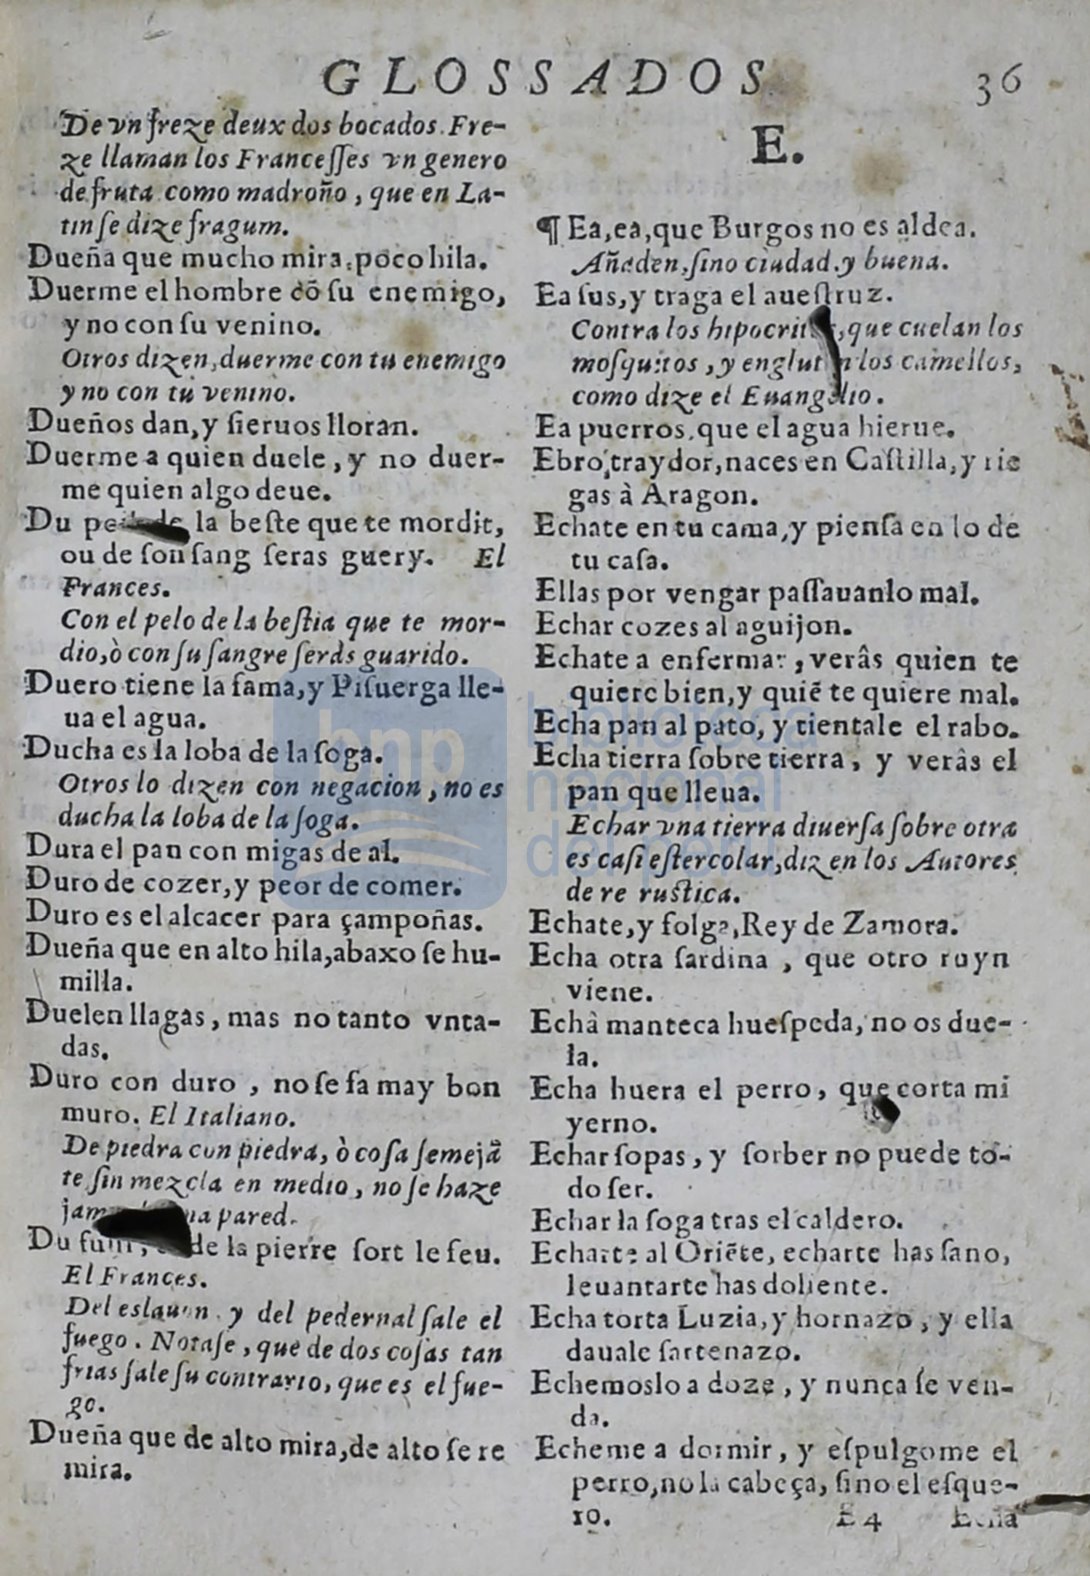 GLOSSADOS 36
De vn freze deux dos bocados. Fre-
ze llaman los Francesses vn genero
de fruta como madroño, que en La-
tin se dize fragum.
Dueña que mucho mira, poco hila.
Duerme el hombre cõ su enemigo,
y no con su venino.
Otros dizen, duerme con tu enemigo
y no con tu venino.
Dueños dan, y sieruos lloran.
Duerme a quien duele, y no duer-
me quien algo deue.
Du de la beste que te mordit,
ou de son sang seras guery. El
Frances.
Con el pelo de la bestia que te mor-
dio, ò con su sangre seràs guarido.
Duero tiene la fama, y Pisuerga lle-
ua el agua.
Ducha es la loba de la soga.
Otros lo dizen con negacion, no es
ducha la loba de la soga.
Dura el pan con migas de al.
Duro de cozer, y peor de comer.
Duro es el alcacer para çampoñas.
Dueña que en alto hila, abaxo se hu-
milla.
Duelen llagas, mas no tanto vnta-
das.
Duro con duro, no se fa may bon
muro. El Italiano.
De piedra con piedra, ò cosa semejã
te sin mezcla en medio, no se haze
pared.
Du de la pierre sort le feu.
El Frances.
Del eslauon y del pedernal sale el
fuego. Notase, que de dos cosas tan
frias sale su contrario, que es el fue-
go.
Dueña que de alto mira, de alto se re
mira.
E.
¶ Ea, ea, que Burgos no es aldea.
Añaden, sino ciudad y buena.
Ea sus, y traga el auestruz.
Contra los hipocritas, que cuelan los
mosquitos, y engluten los camellos,
como dize el Euangelio.
Ea puerros, que el agua hierue.
Ebro traydor, naces en Castilla, y rie
gas à Aragon.
Echate en tu cama, y piensa en lo de
tu casa.
Ellas por vengar passauanlo mal.
Echar cozes al aguijon.
Echate a enfermar, veràs quien te
quiere bien, y quiẽ te quiere mal.
Echa pan al pato, y tientale el rabo.
Echa tierra sobre tierra, y veràs el
pan que lleua.
Echar vna tierra diuersa sobre otra
es casi estercolar, dizen los Autores
de re rustica.
Echate, y folga, Rey de Zamora.
Echa otra sardina, que otro ruyn
viene.
Echà manteca huespeda, no os due-
la.
Echa huera el perro, que corta mi
yerno.
Echar sopas, y sorber no puede to-
do ser.
Echar la soga tras el caldero.
Echarte al Oriẽte, echarte has sano,
leuantarte has doliente.
Echa torta Luzia, y hornazo, y ella
dauale sartenazo.
Echemoslo a doze, y nunca se ven-
da.
Echeme a dormir, y espulgome el
perro, no la cabeça, sino el esque-
ro.
E 4 Echa